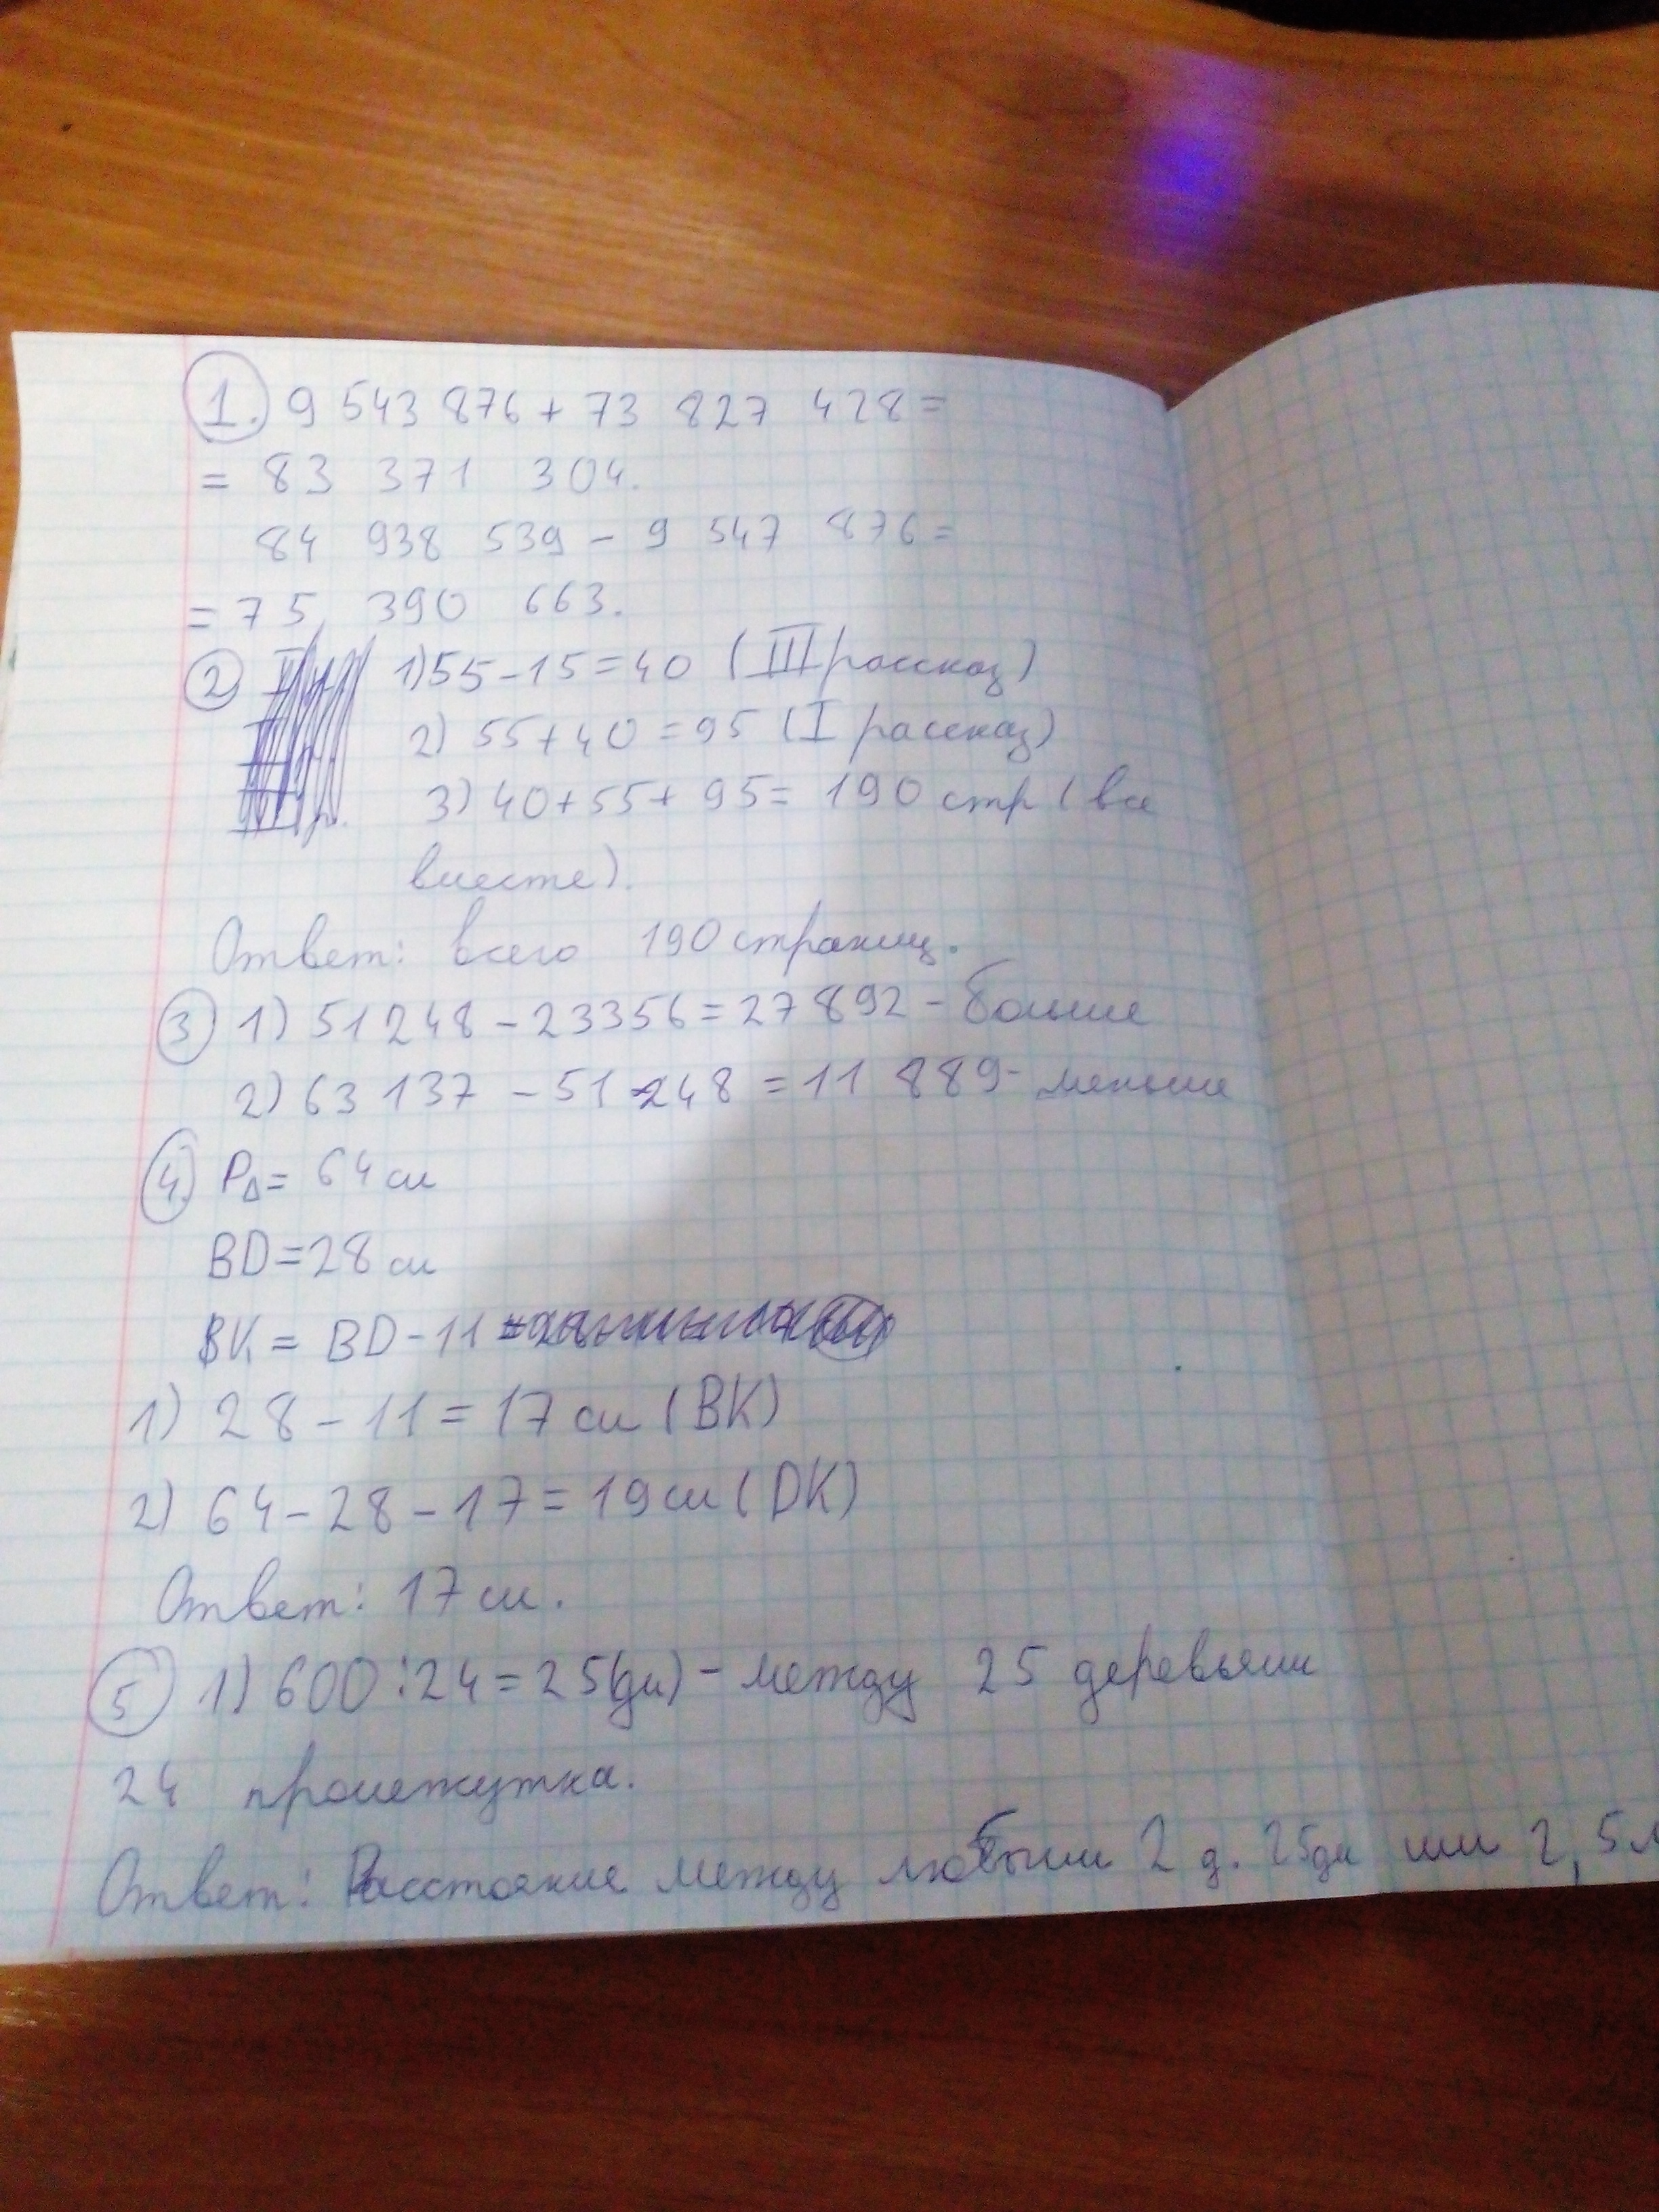 1. 9 543 876 + 73 827 428 =
= 83 371 304.
84 938 539 - 9 547 876 =
= 75 390 663.
2 1) 55 - 15 = 40 (III рассказ)
2) 55 + 40 = 95 (I рассказ)
3) 40 + 55 + 95 = 190 стр (все
вместе).
Ответ: всего 190 страниц.
3 1) 51 248 - 23356 = 27 892 - больше
2) 63 137 - 51 248 = 11 889 - меньше
4. P∆ = 64 см
BD = 28 см
BK = BD - 11
1) 28 - 11 = 17 см (BK)
2) 64 - 28 - 17 = 19 см (DK)
Ответ: 17 см.
5 1) 600 : 24 = 25 (дм) - между 25 деревьями
24 промежутка.
Ответ: Расстояние между любыми 2 д. 25 дм или 2,5 м